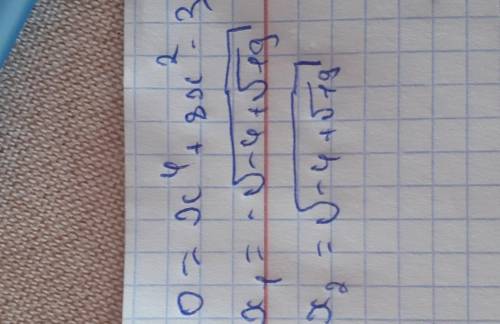 0 = x⁴ + 8x² - 3
x₁ = -√(-4+√19)
x₂ = √(-4+√19)